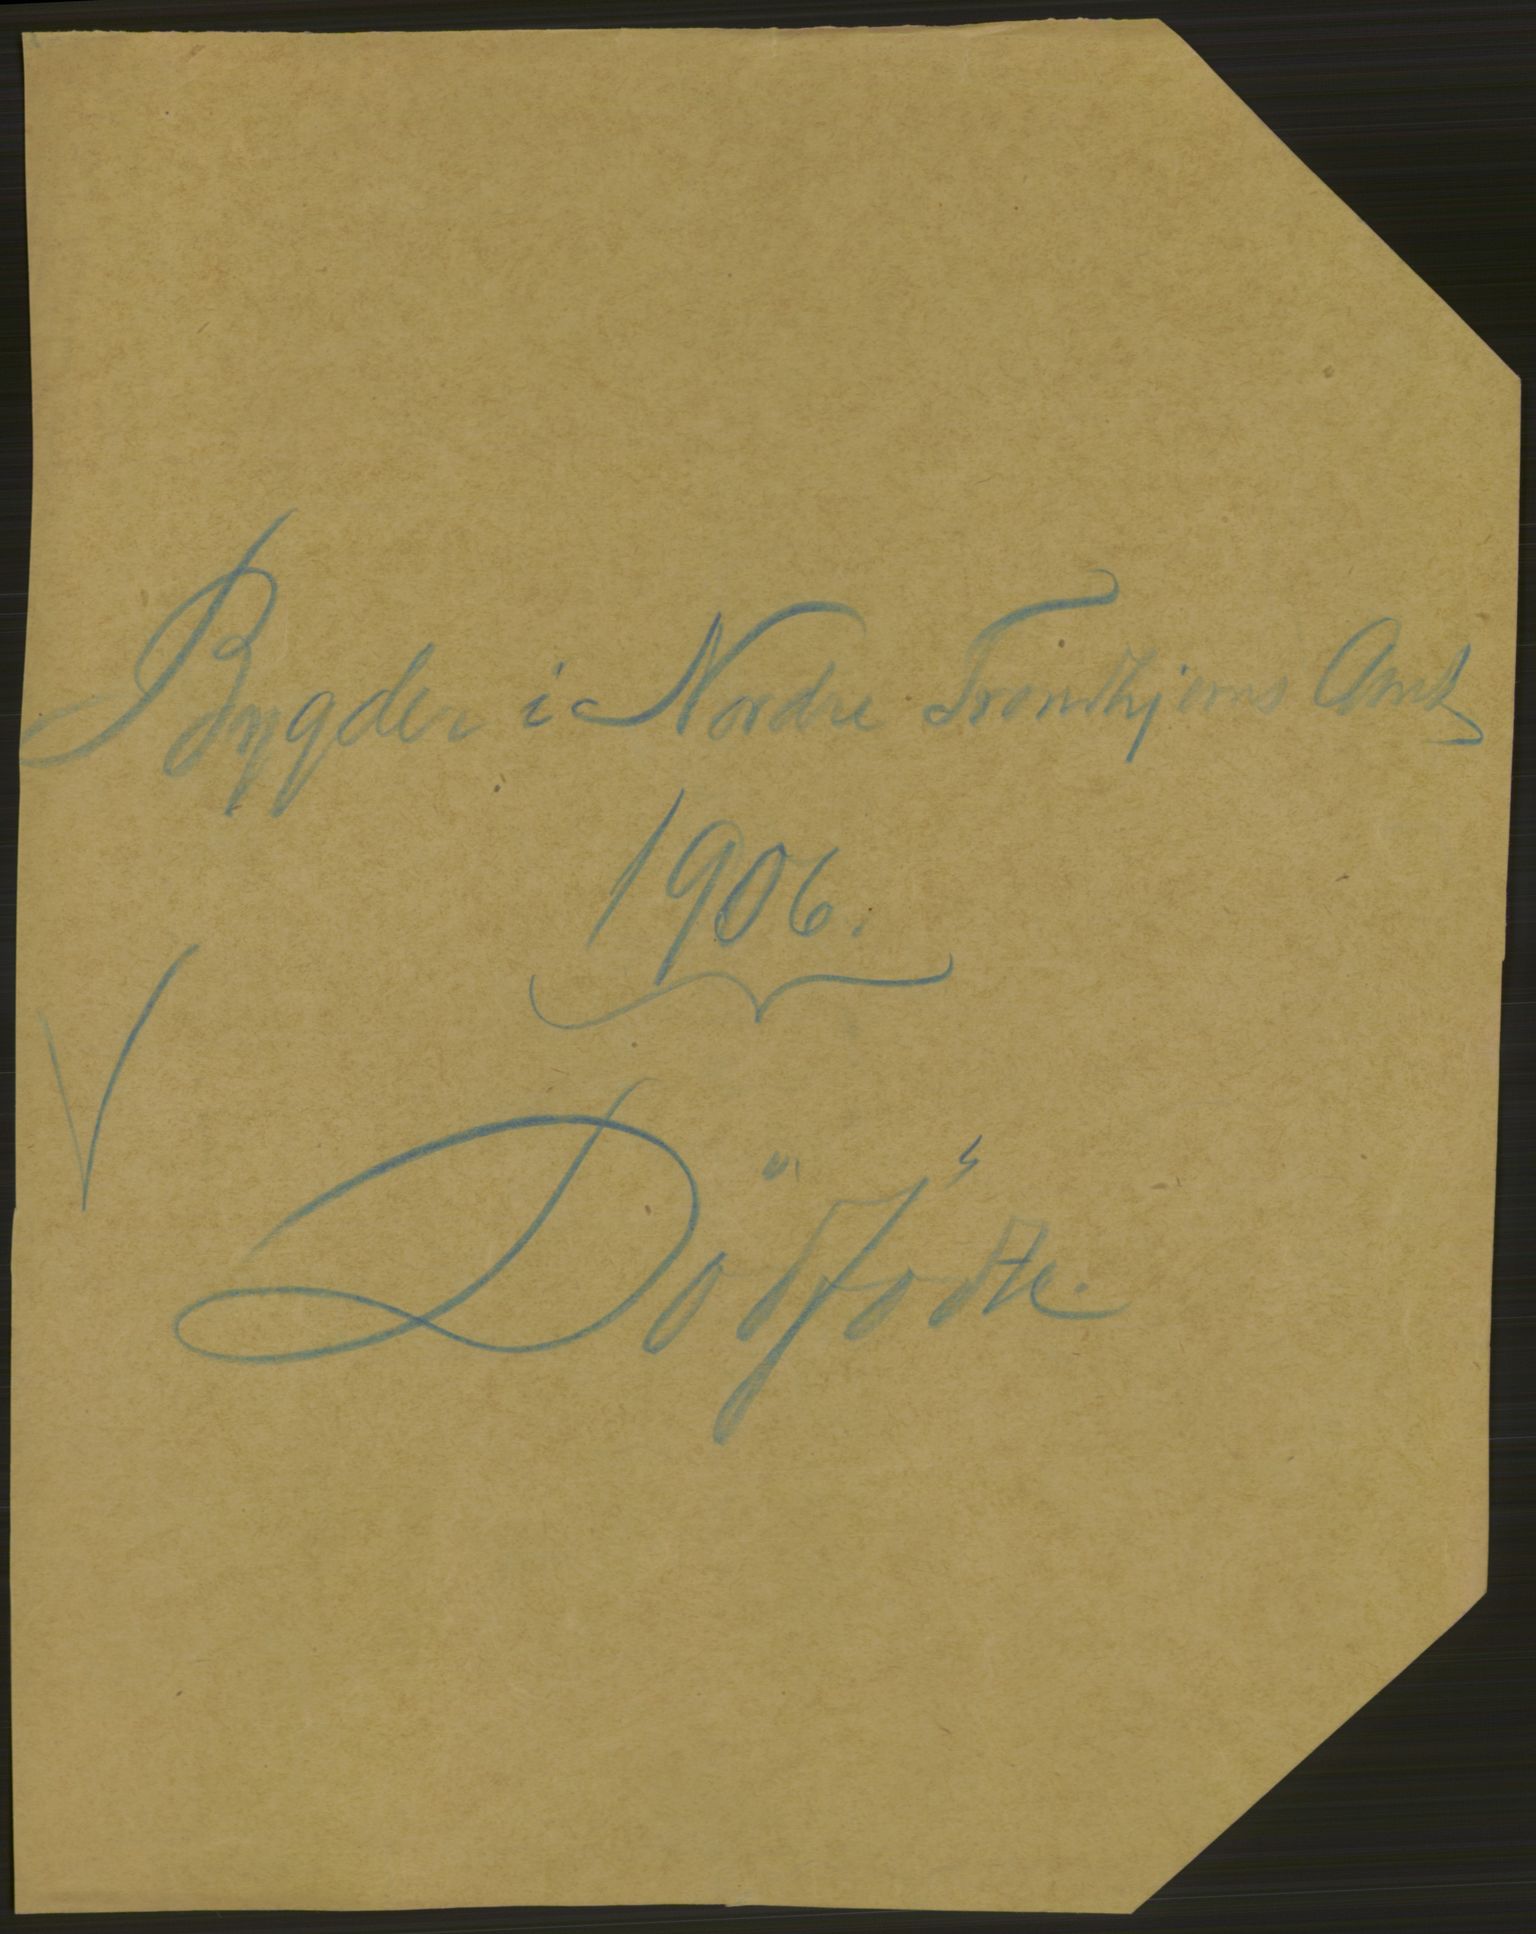 Bygder i Nordre Trondhjems Amt
1906.
Dödfödte.